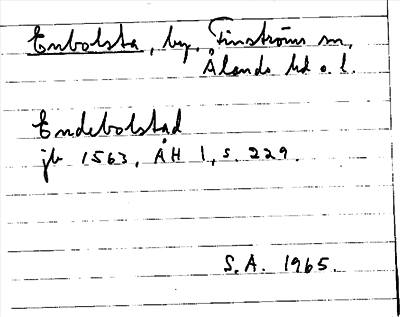 Enbolsta, by, Finströms sn,
Ålands hd o. l.
Endebolstad
jb 1563, ÅH 1, s. 229.
S.A. 1965.